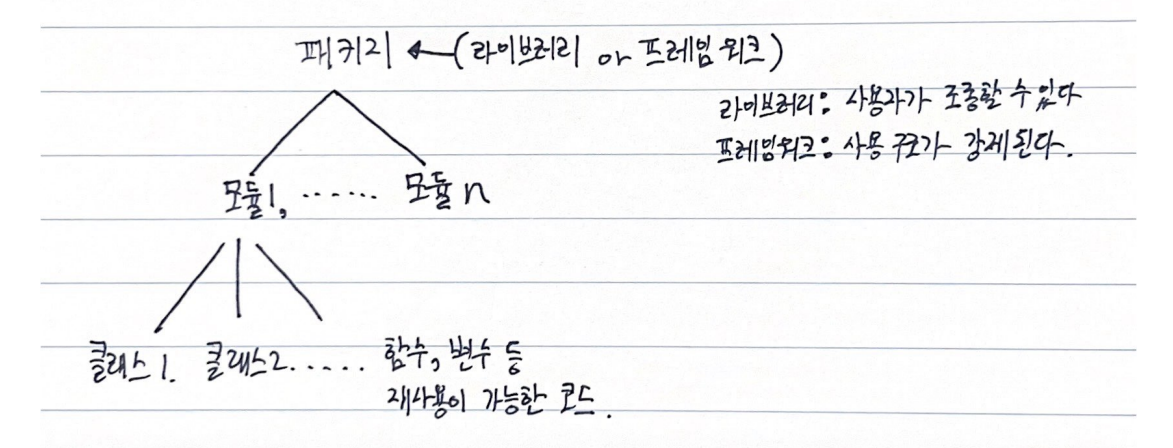 패키지 ← (라이브러리 or 프레임워크)
라이브러리: 사용자가 조종할 수 있다
프레임워크: 사용 구조가 강제된다.
모듈1, ······ 모듈 n
클래스 1. 클래스2. ..... 함수, 변수 등
재사용이 가능한 코드.